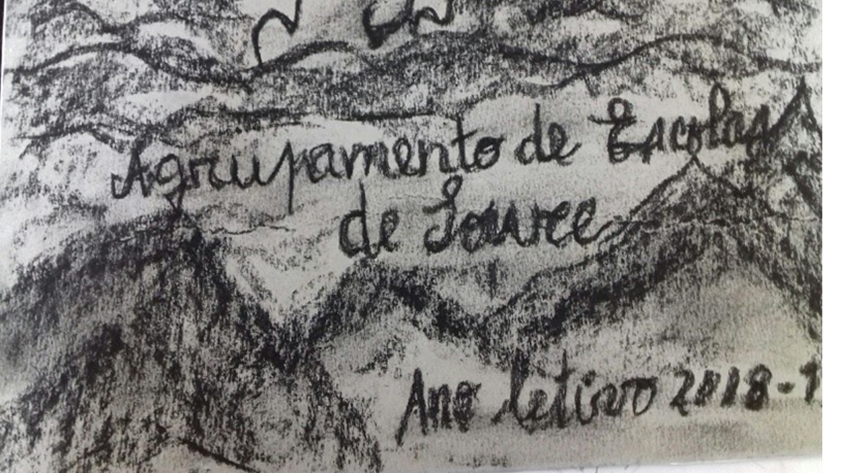 Agrupamento de Escolas
de Soure
Ano letivo 2018-1